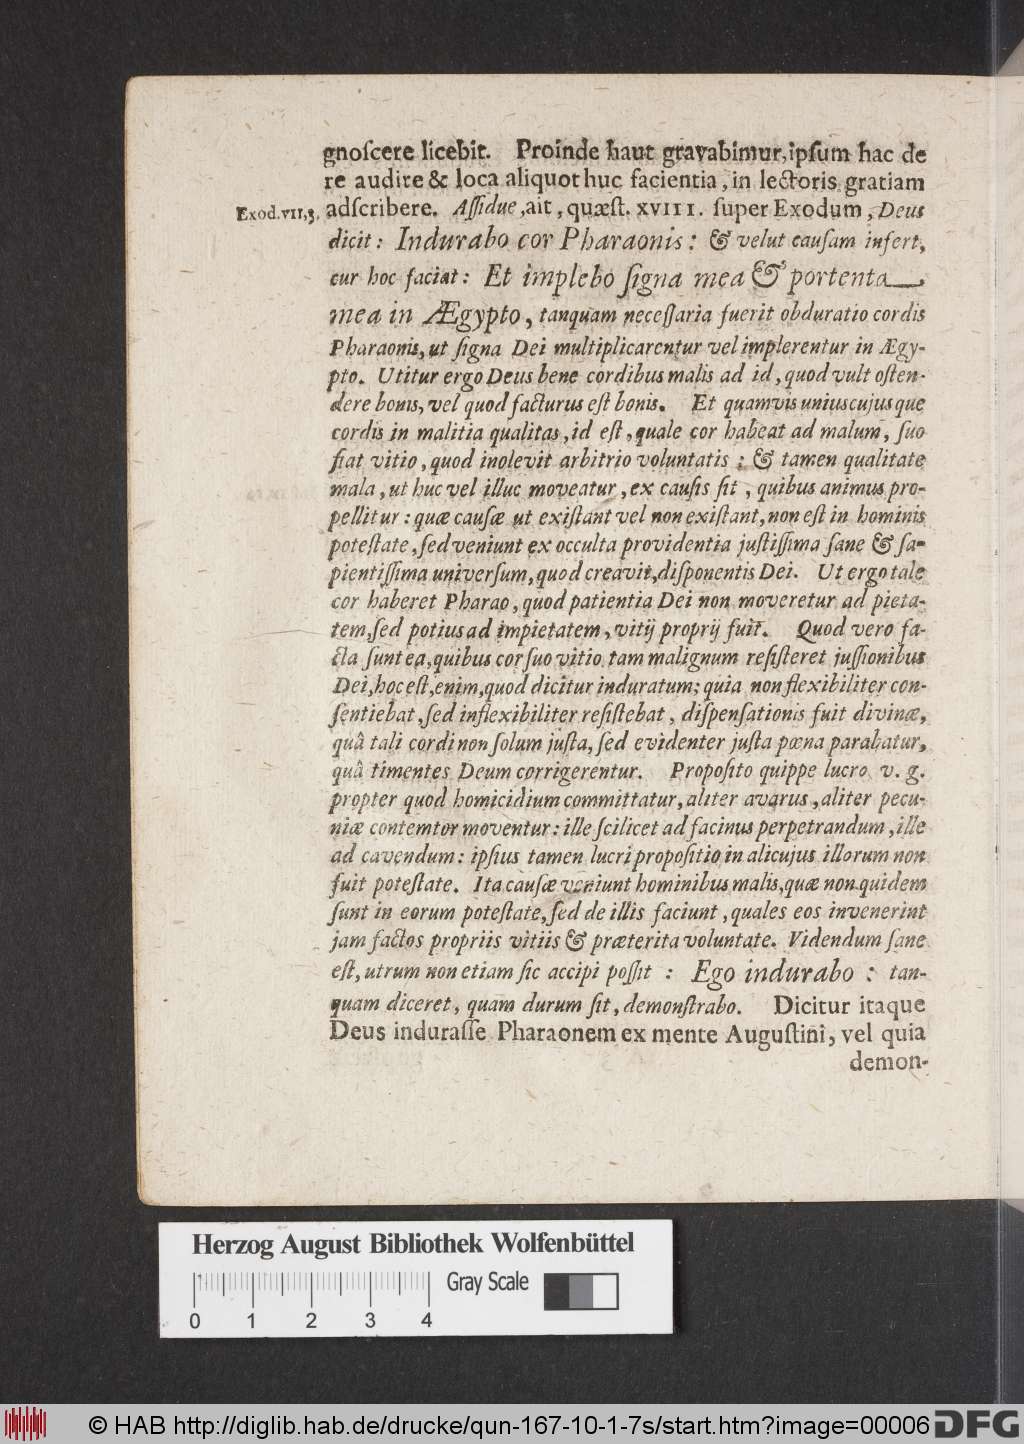 gnoſcere licebit. Proinde haut gravabimur, ipſum hac de
re audire & loca aliquot huc facientia, in lectoris gratiam
Exod. VII, 3.
adſcribere. Aſſidue, ait, quæſt. XVIII. ſuper Exodum, Deus
dicit: Indurabo cor Pharaonis: & velut cauſam infert,
cur hoc faciat: Et implebo ſigna mea & portenta
mea in Ægypto, tanquam neceſſaria fuerit obduratio cordis
Pharaonis, ut ſigna Dei multiplicarentur vel implerentur in Ægy-
pto. Utitur ergo Deus bene cordibus malis ad id, quod vult oſten-
dere bonis, vel quod facturus eſt bonis. Et quamvis uniuscujusque
cordis in malitia qualitas, id eſt, quale cor habeat ad malum, ſuo
fiat vitio, quod inolevit arbitrio voluntatis: & tamen qualitate
mala, ut huc vel illuc moveatur, ex cauſis fit, quibus animus pro-
pellitur: quæ cauſæ ut exiſtant vel non exiſtant, non eſt in hominis
poteſtate, ſed veniunt ex occulta providentia juſtiſſima ſane & ſa-
pientiſſima univerſum, quod creavit, diſponentis Dei. Ut ergo tale
cor haberet Pharao, quod patientia Dei non moveretur ad pieta-
tem, ſed potius ad impietatem, vitij proprij fuit. Quod vero fa-
cta ſunt ea, quibus cor ſuo vitio tam malignum reſiſteret juſſionibus
Dei, hoc eſt, enim, quod dicitur induratum; quia non flexibiliter con-
ſentiebat, ſed inflexibiliter reſiſtebat, diſpenſationis fuit divinæ,
quâ tali cordi non ſolum juſta, ſed evidenter juſta pœna parabatur,
quâ timentes Deum corrigerentur. Propoſito quippe lucro v. g.
propter quod homicidium committatur, aliter avarus, aliter pecu-
niæ contemtor moventur: ille ſcilicet ad facinus perpetrandum, ille
ad cavendum: ipſius tamen lucri propoſitio in alicujus illorum non
fuit poteſtate. Ita cauſæ veniunt hominibus malis, quæ non quidem
ſunt in eorum poteſtate, ſed de illis faciunt, quales eos invenerint
jam factos propriis vitiis & præterita voluntate. Videndum ſane
eſt, utrum non etiam ſic accipi poſſit: Ego indurabo: tan-
quam diceret, quam durum ſit, demonſtrabo. Dicitur itaque
Deus induraſſe Pharaonem ex mente Auguſtini, vel quia
demon-
Herzog August Bibliothek Wolfenbüttel
Gray Scale
0 1 2 3 4
© HAB http://diglib.hab.de/drucke/qun-167-10-1-7s/start.htm?image=00006
DFG